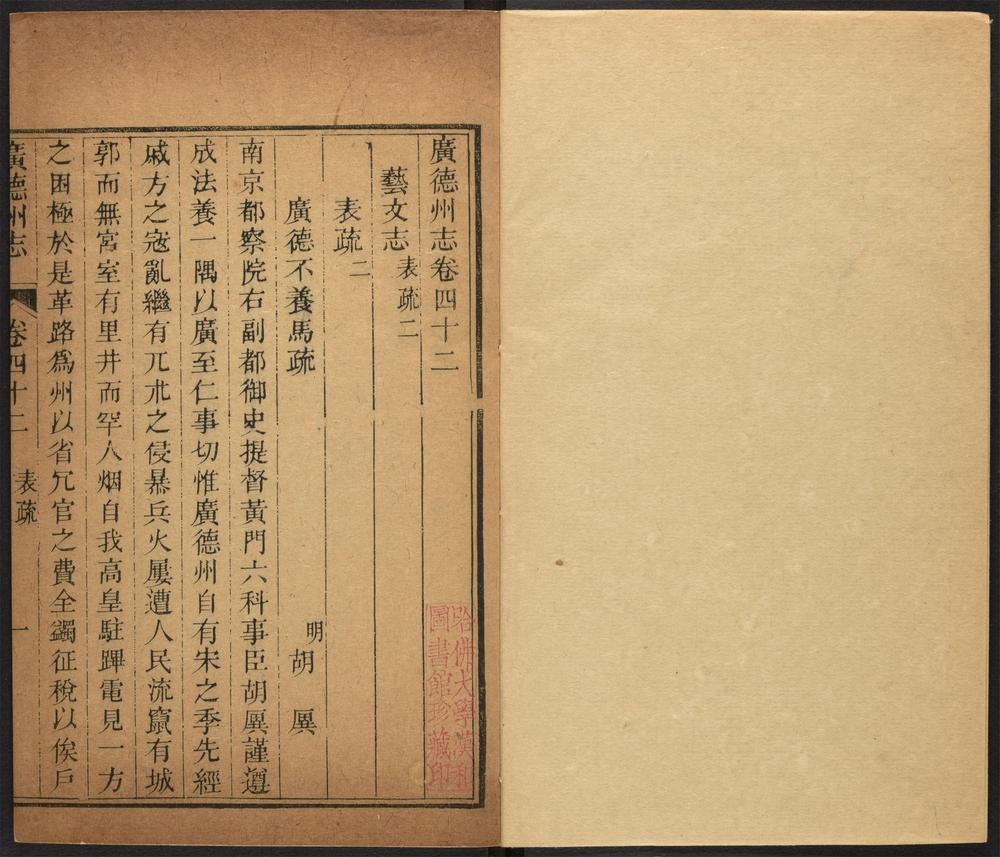 廣德州志卷四十二
藝文志 表疏二
表疏二
廣德不養馬疏
明 胡 㒹
南京都察院右副都御史提督黃門六科事臣胡㒹謹遵
成法養一隅以廣至仁事切惟廣德州自有宋之季先經
戚方之寇亂繼有兀朮之侵暴兵火屢遭人民流竄有城
郭而無宮室有里井而罕人烟自我高皇駐蹕電見一方
之困極於是革路爲州以省冗官之費全蠲征稅以俟戶
廣德州志 卷四十二 表疏 一
哈佛大學漢和
圖書館珍藏印